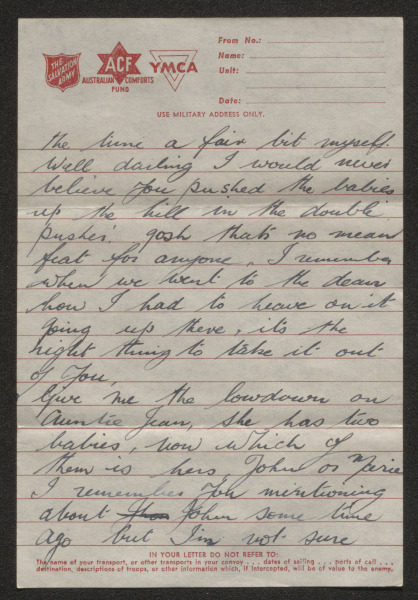 THE
SALVATION
ARMY
ACF
AUSTRALIAN COMFORTS
FUND
YMCA
From No.:
Name:
Unit:
Date:
USE MILITARY ADDRESS ONLY.
the time a fair bit myself.
Well darling I would never
believe you pushed the babies
up the hill in the double
pusher, gosh thats no mean
feat for anyone, I remember
when we went to the dean
how I had to heave on it
going up there, it's the
right thing to take it out
of you,
Give me the lowdown on
Auntie Jean, she has two
babies, now which of
them is hers, John or Marie
I remember you mentioning
about John some time
ago but I'm not sure
IN YOUR LETTER DO NOT REFER TO:
The name of your transport, or other transports in your convoy . . . dates of sailing . . . ports of call . . .
destination, descriptions of troops, or other information which, if intercepted, will be of value to the enemy.